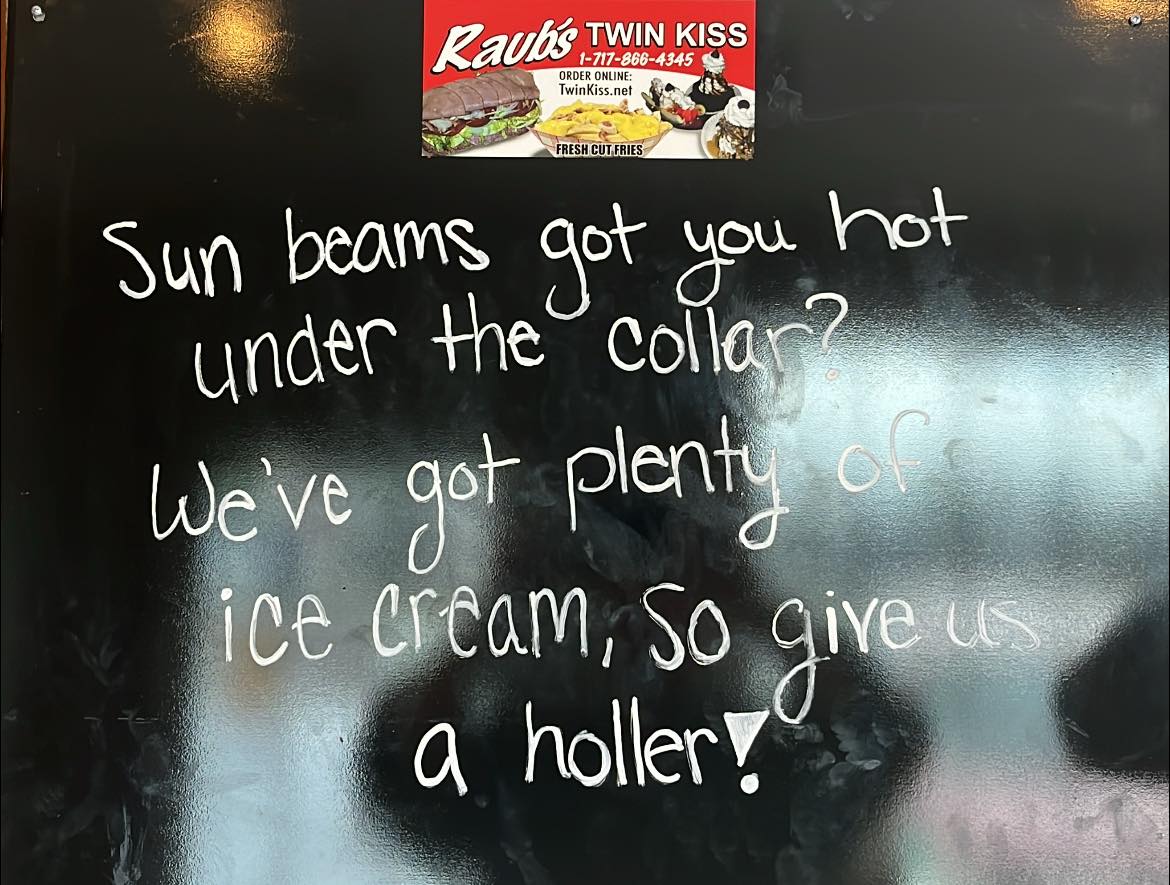 Raub's TWIN KISS
1-717-866-4345
ORDER ONLINE:
TwinKiss.net
FRESH CUT FRIES
Sun beams got you hot
under the collar?
We've got plenty of
ice cream, so give us
a holler!